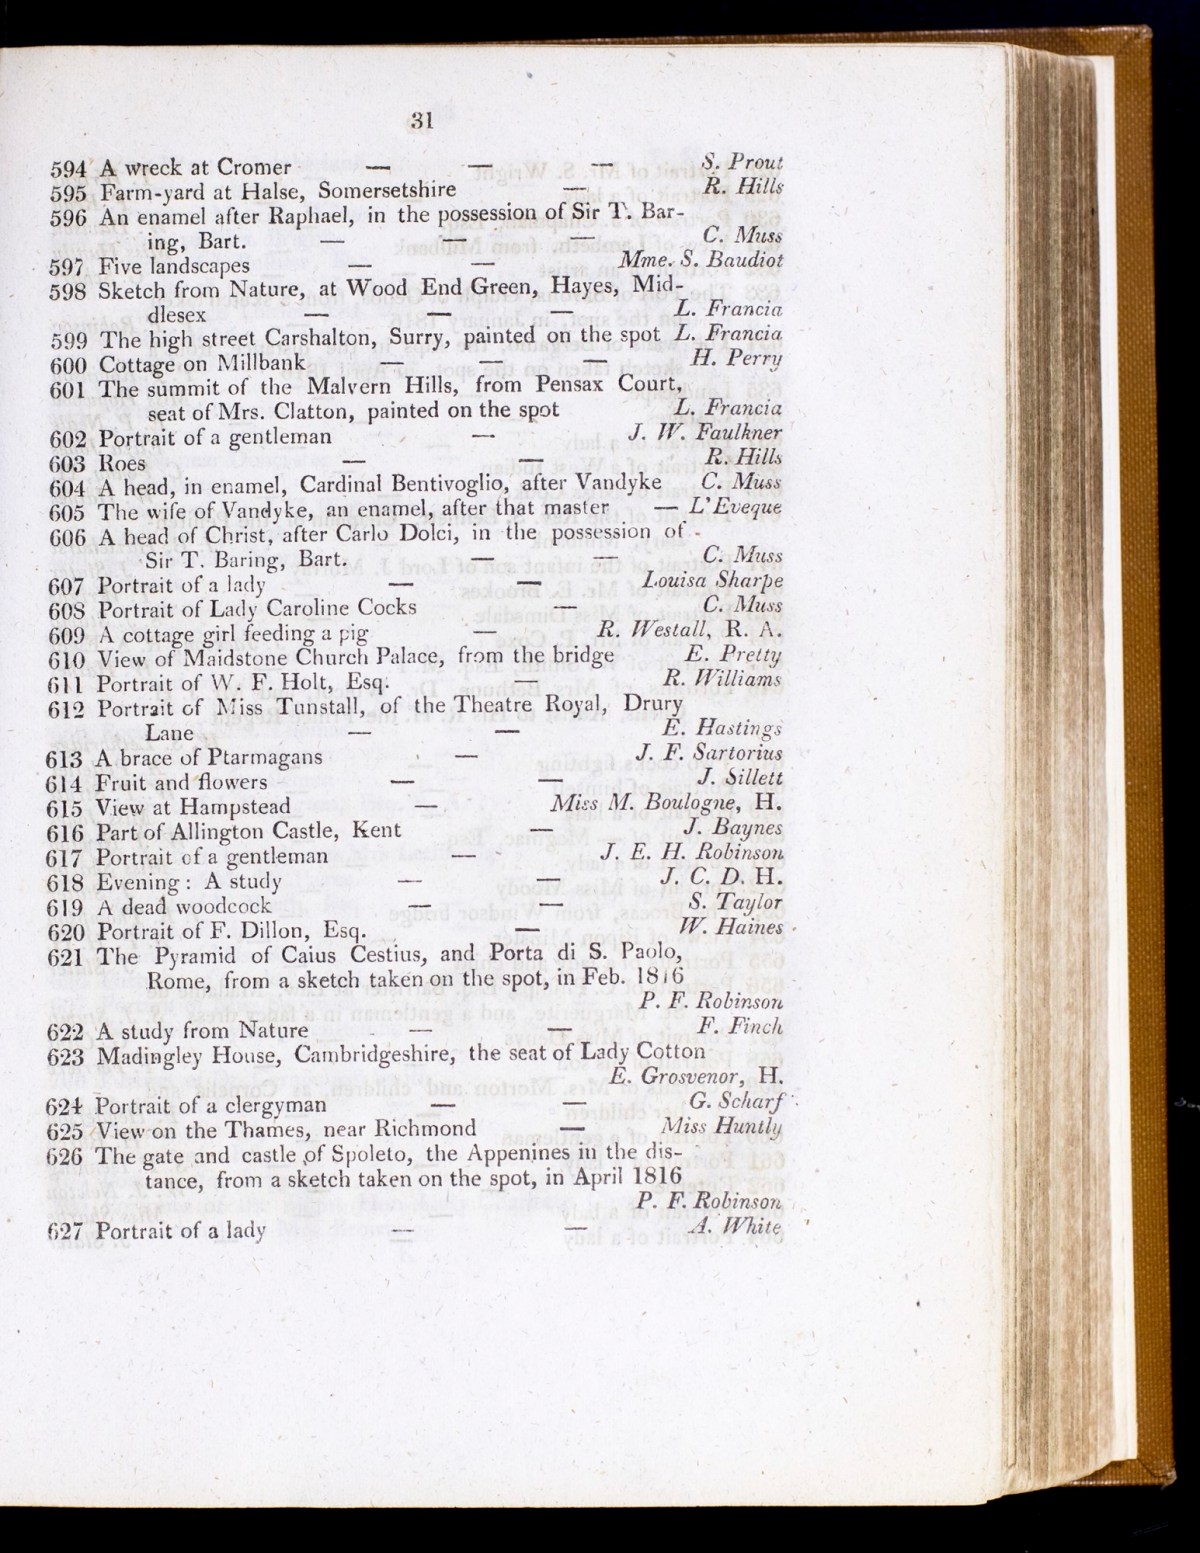 31
594 A wreck at Cromer — — — S. Prout
595 Farm-yard at Halse, Somersetshire — R. Hills
596 An enamel after Raphael, in the possession of Sir T. Bar-
ing, Bart. — — — C. Muss
597 Five landscapes — — Mme. S. Baudiot
598 Sketch from Nature, at Wood End Green, Hayes, Mid-
dlesex — — — L. Francia
599 The high street Carshalton, Surry, painted on the spot L. Francia
600 Cottage on Millbank — — — H. Perry
601 The summit of the Malvern Hills, from Pensax Court,
seat of Mrs. Clatton, painted on the spot L. Francia
602 Portrait of a gentleman — J. W. Faulkner
603 Roes — — R. Hills
604 A head, in enamel, Cardinal Bentivoglio, after Vandyke C. Muss
605 The wife of Vandyke, an enamel, after that master — L'Eveque
606 A head of Christ, after Carlo Dolci, in the possession of
Sir T. Baring, Bart. — — C. Muss
607 Portrait of a lady — — Louisa Sharpe
608 Portrait of Lady Caroline Cocks — C. Muss
609 A cottage girl feeding a pig — R. Westall, R. A.
610 View of Maidstone Church Palace, from the bridge E. Pretty
611 Portrait of W. F. Holt, Esq. — R. Williams
612 Portrait of Miss Tunstall, of the Theatre Royal, Drury
Lane — — E. Hastings
613 A brace of Ptarmagans — J. F. Sartorius
614 Fruit and flowers — — J. Sillett
615 View at Hampstead — Miss M. Boulogne, H.
616 Part of Allington Castle, Kent — J. Baynes
617 Portrait of a gentleman — J. E. H. Robinson
618 Evening: A study — — J. C. D. H.
619 A dead woodcock — — S. Taylor
620 Portrait of F. Dillon, Esq. — W. Haines
621 The Pyramid of Caius Cestius, and Porta di S. Paolo,
Rome, from a sketch taken on the spot, in Feb. 1816
P. F. Robinson
622 A study from Nature — — F. Finch
623 Madingley House, Cambridgeshire, the seat of Lady Cotton
E. Grosvenor, H.
624 Portrait of a clergyman — — G. Scharf
625 View on the Thames, near Richmond — Miss Huntly
626 The gate and castle of Spoleto, the Appenines in the dis-
tance, from a sketch taken on the spot, in April 1816
P. F. Robinson
627 Portrait of a lady — — A. White